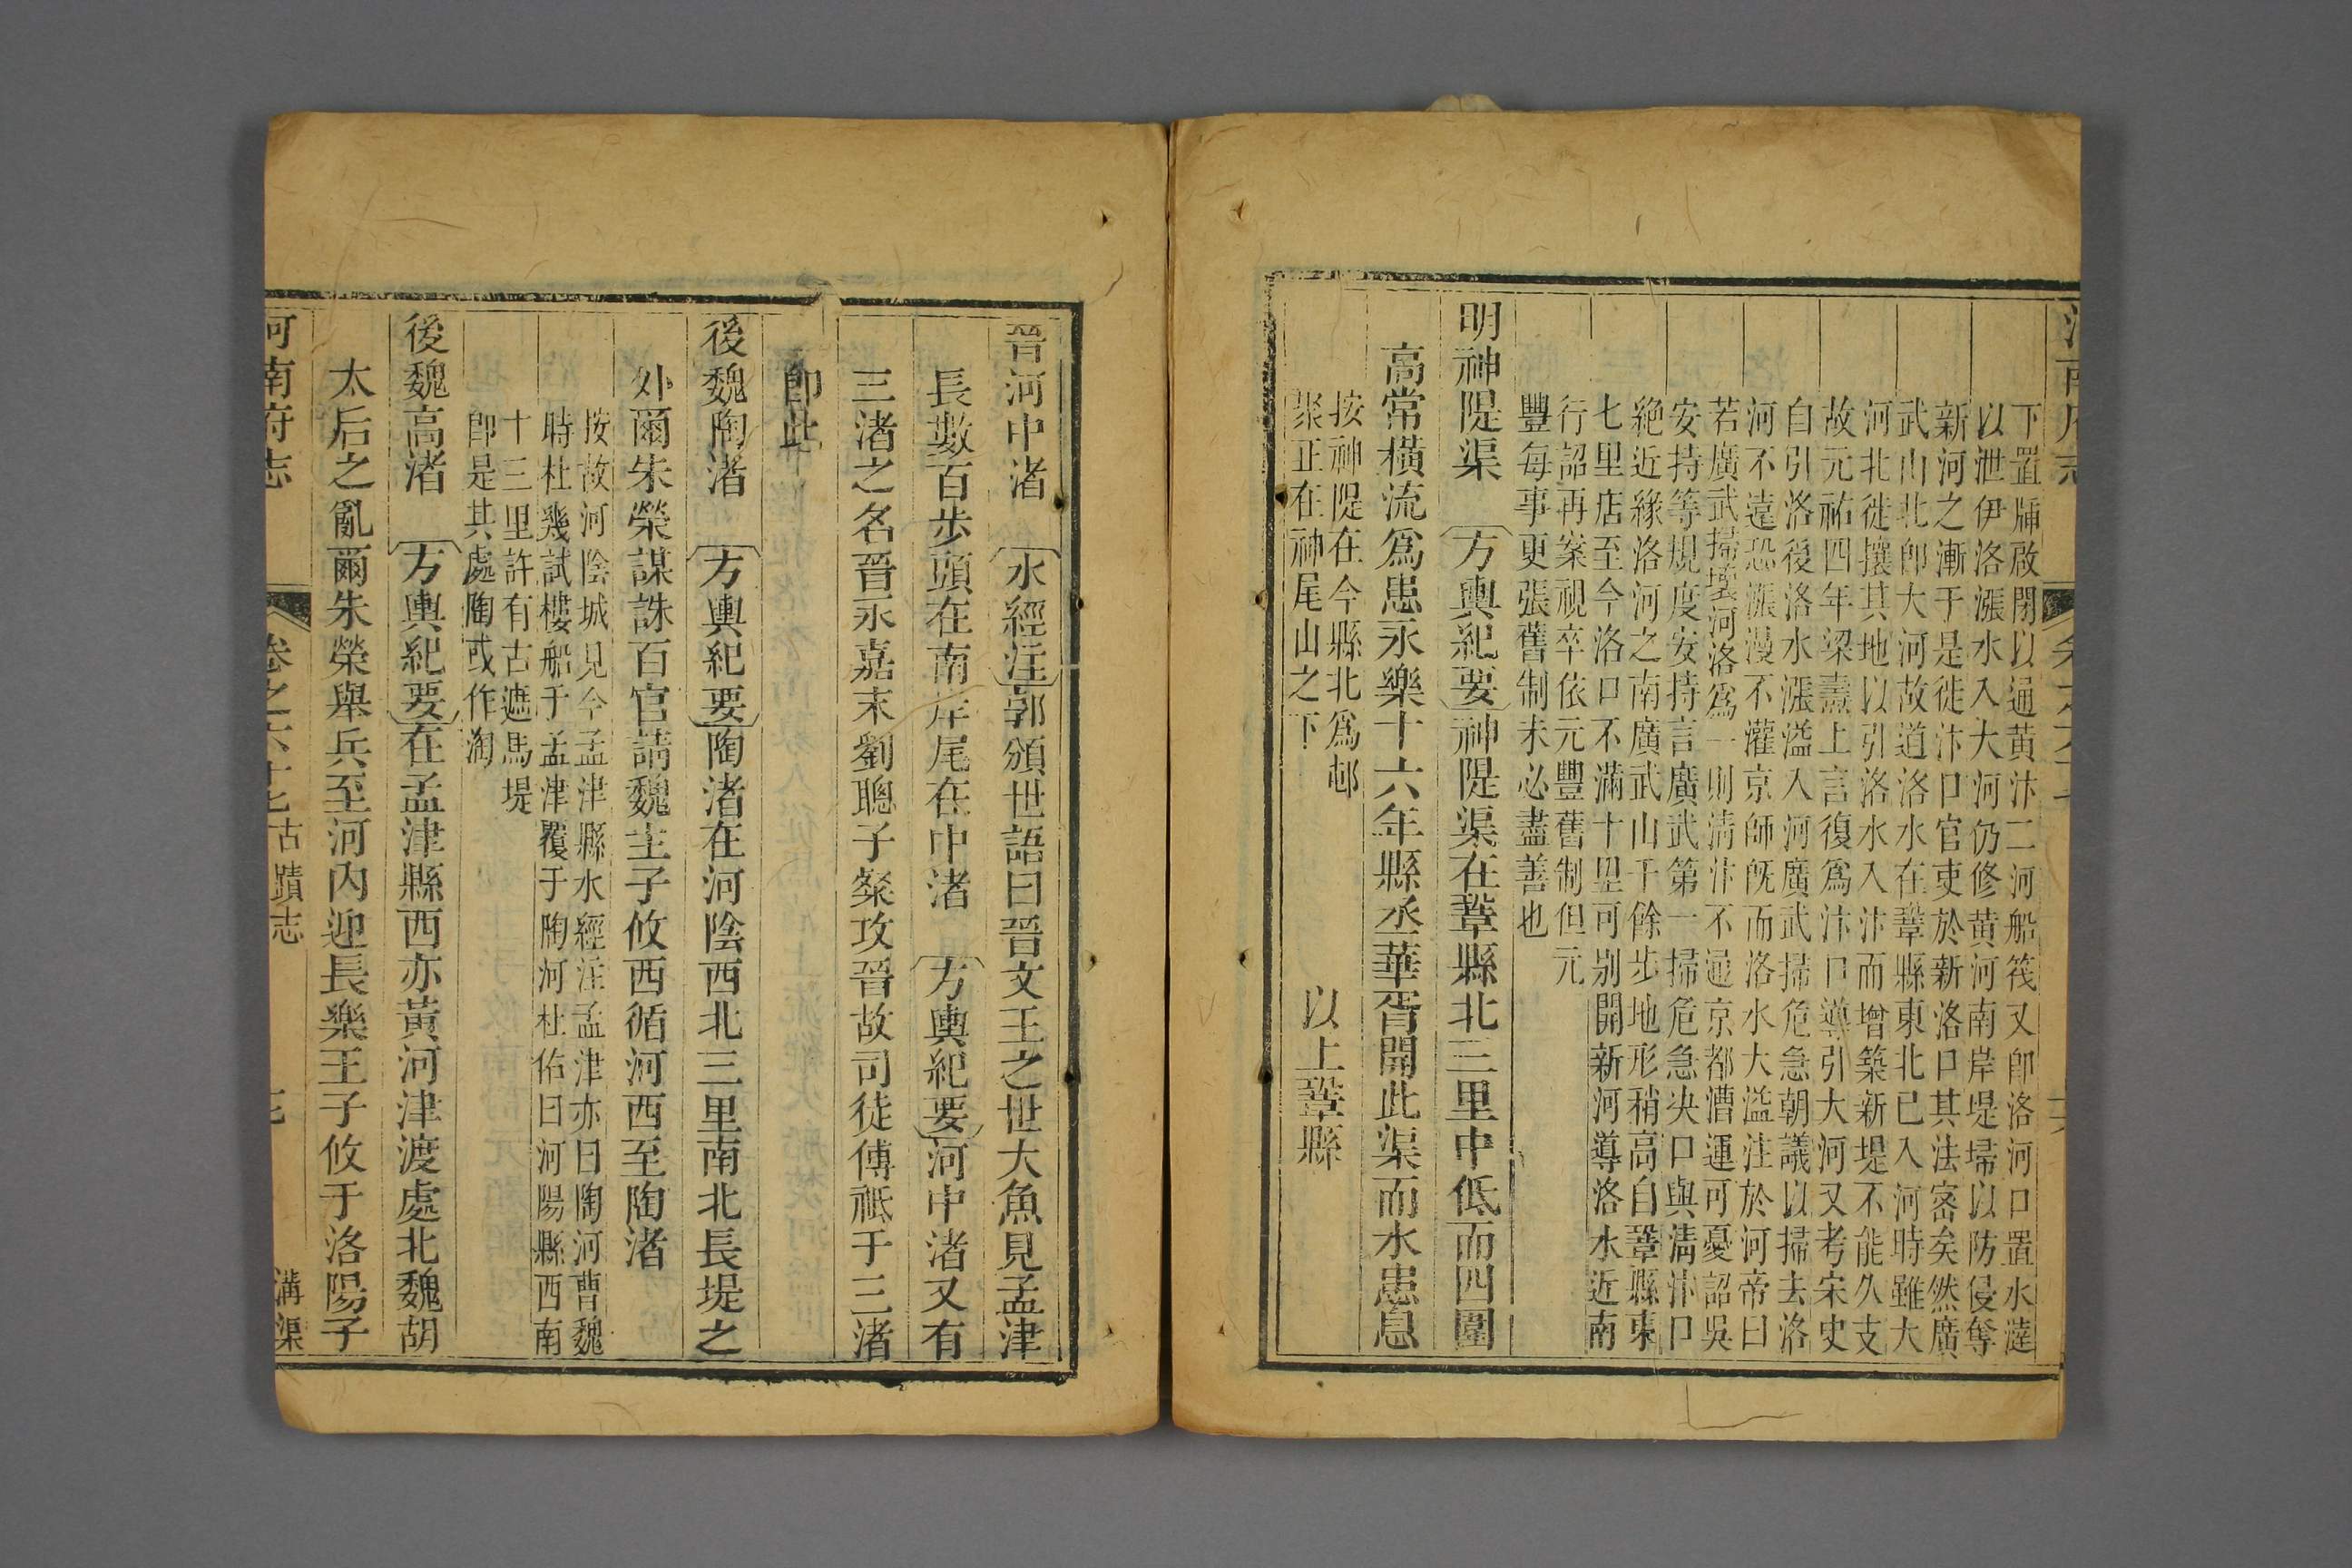 下置牐啟閉以通黃汴二河船筏又卽洛河口置水澾
以泄伊洛漲水入大河仍修黃河南岸堤埽以防侵奪
新河之漸于是徙汴口官吏於新洛口其法密矣然廣
武山北卽大河故道洛水在鞏縣東北已入河時雖大
河北徙攘其地以引洛水入汴而增築新堤不能久支
故元祐四年梁燾上言復爲汴口導引大河又考宋史
自引洛後洛水漲溢入河廣武掃危急朝議以掃去洛
河不遠恐漲漫不灌京師旣而洛水大溢注於河帝曰
若廣武掃壞河洛爲一則清汴不通京都漕運可憂詔吳
安持等規度安持言廣武第一掃危急決口與清汴口
絕近緣洛河之南廣武山千餘步地形稍高自鞏縣東
七里店至今洛口不滿十里可别開新河導洛水近南
行詔再案視卒依元豐舊制但元
豐每事更張舊制未必盡善也
明神隄渠〔方輿紀要〕神隄渠在鞏縣北三里中低而四圍
高常橫流爲患永樂十六年縣丞華胥開此渠而水患息
按神隄在今縣北爲邨
聚正在神尾山之下
以上鞏縣
晉河中渚〔水經注〕郭頒世語曰晉文王之世大魚見孟津
長數百步頭在南岸尾在中渚〔方輿紀要〕河中渚又有
三渚之名晉永嘉末劉聰子粲攻晉故司徒傅祗于三渚
卽此
後魏陶渚〔方輿紀要〕陶渚在河陰西北三里南北長堤之
外爾朱榮謀誅百官請魏主子攸西循河西至陶渚
按故河陰城見今孟津縣水經注孟津亦曰陶河曹魏
時杜幾試樓船于孟津覆于陶河杜佑曰河陽縣西南
十三里許有古遮馬堤
卽是其處陶或作淘
後魏高渚〔方輿紀要〕在孟津縣西亦黃河津渡處北魏胡
太后之亂爾朱榮舉兵至河內迎長樂王子攸于洛陽子
河南府志 卷之六十七 古蹟志 溝渠